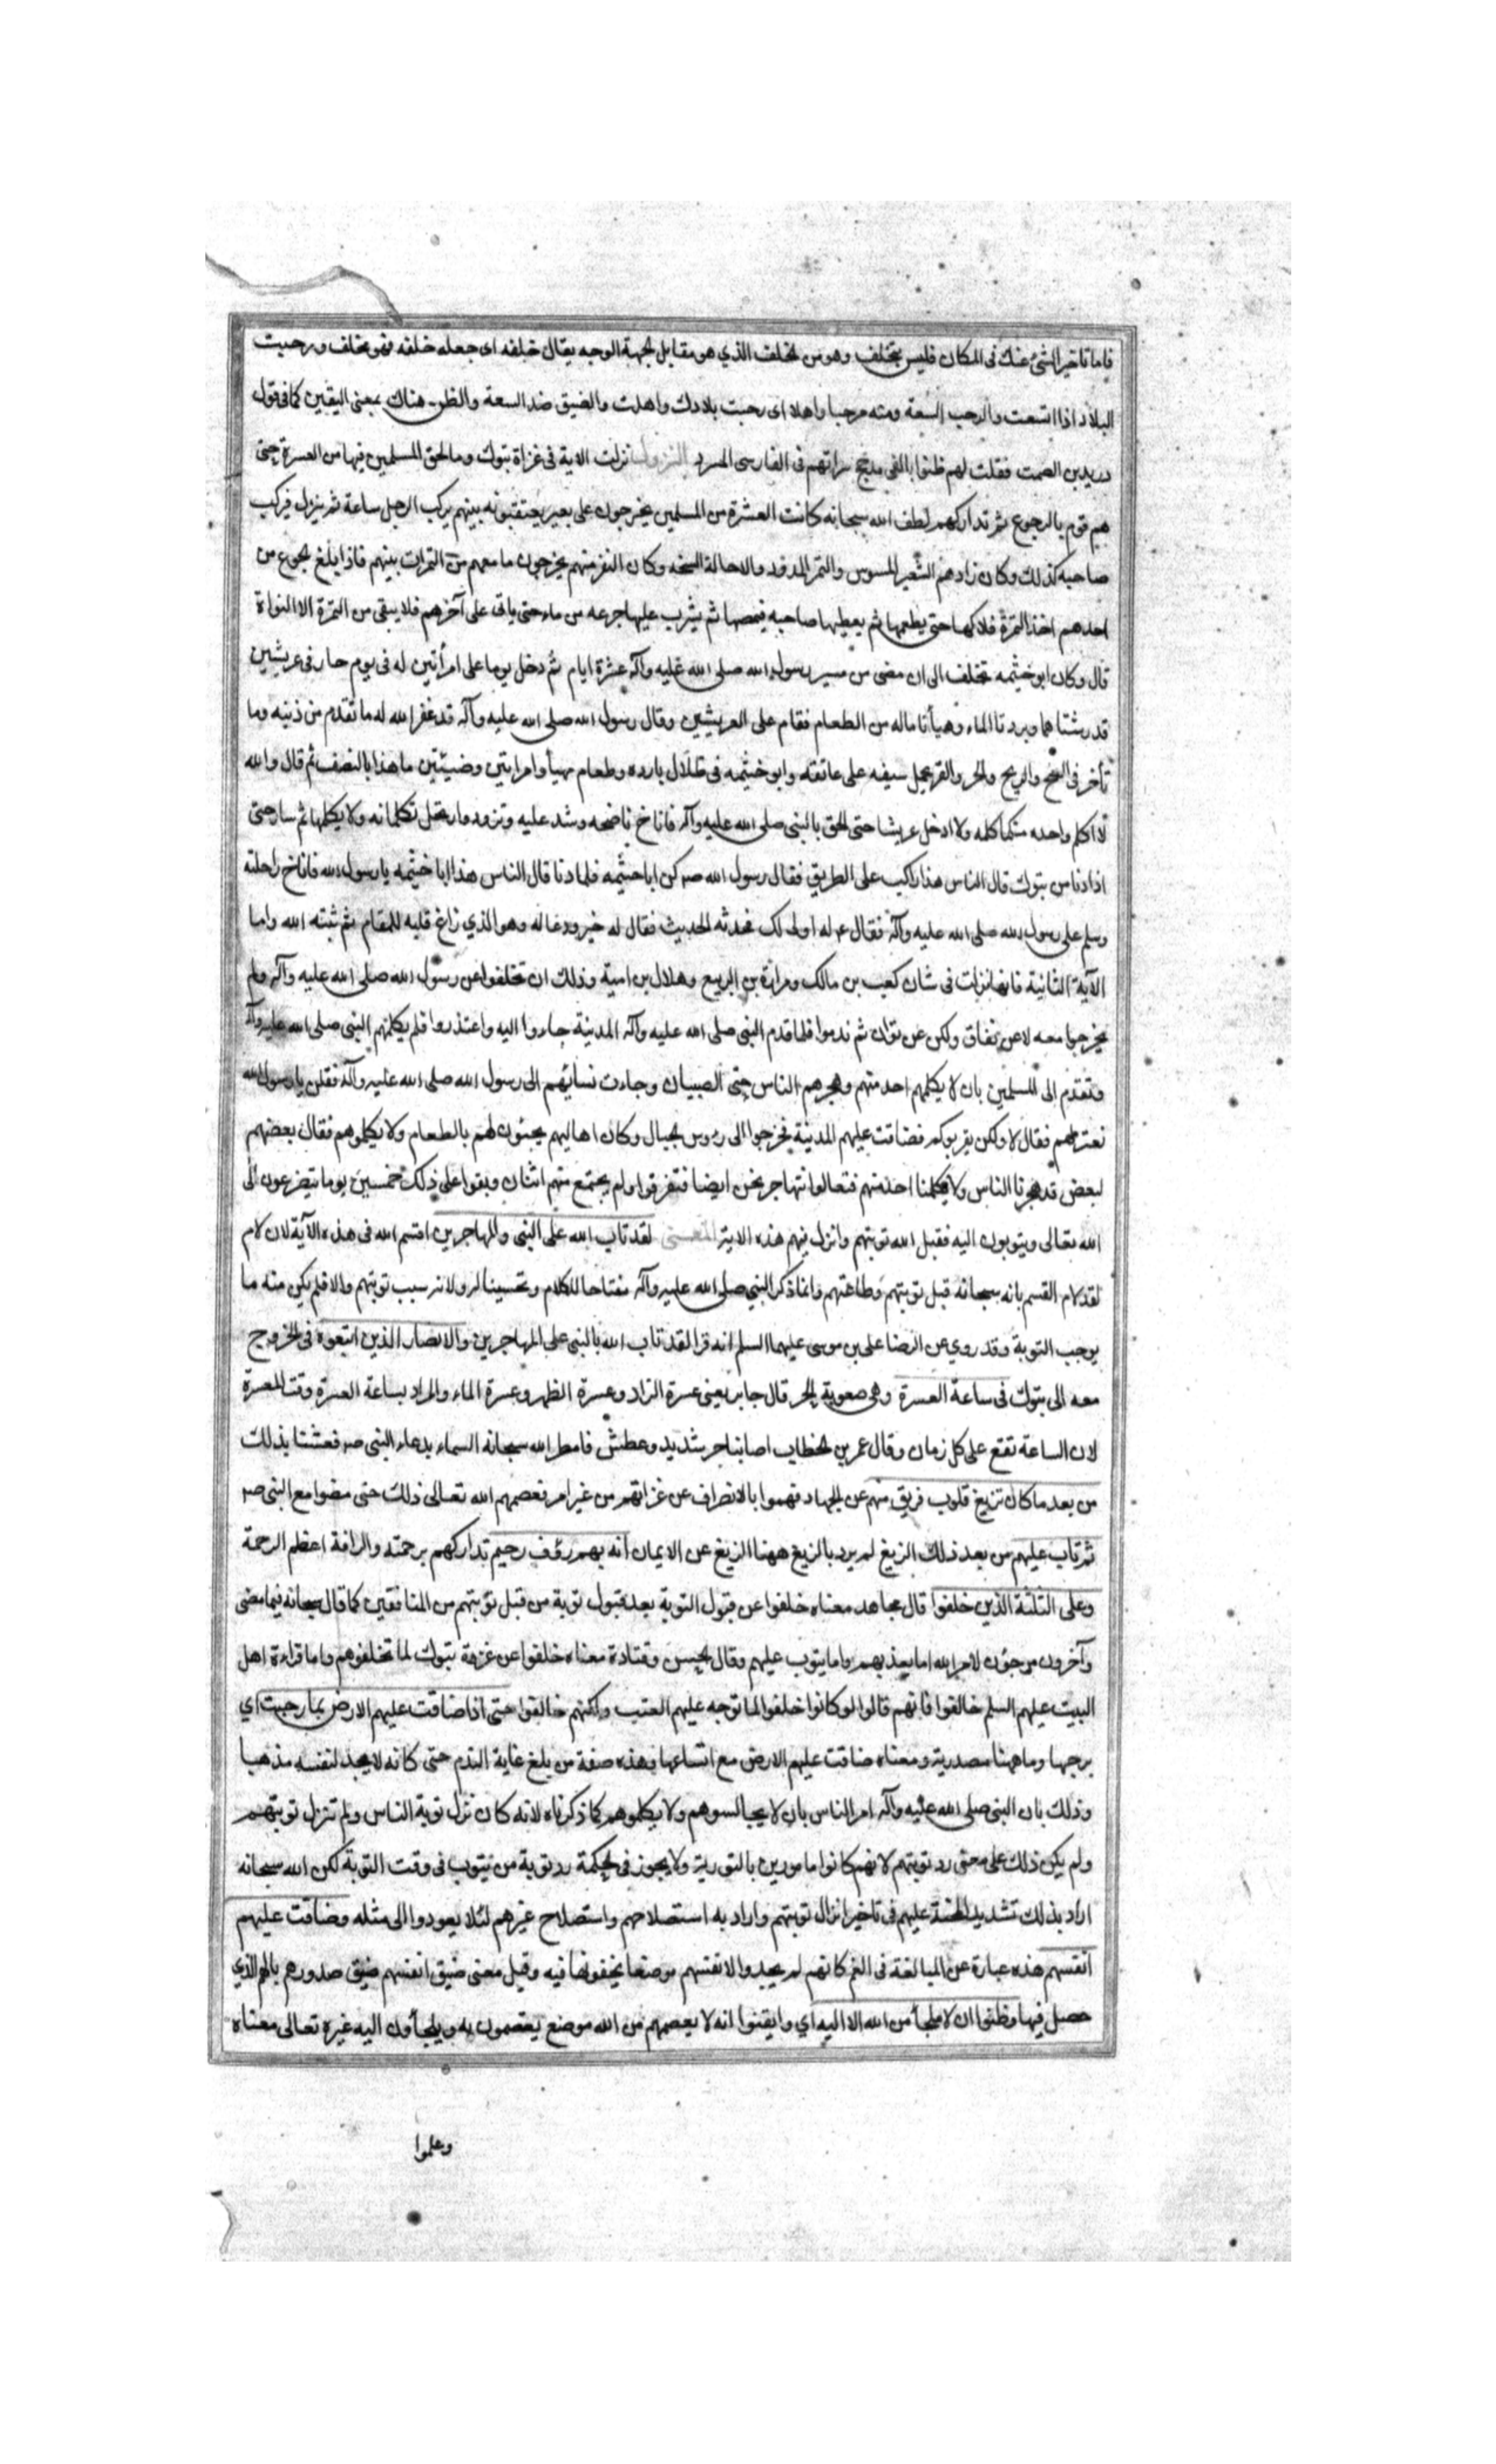 فاما تاخير الشئ عنك فى المكان فليس بتخلف وهو من الخلف الذي هو مقابل لجهة الوجه يقال خلفه اى جعله خلفه فهو مخلف ورحبت
البلاد اذا اتسعت والرحب السعة ومنه مرحبا واهلا اى رحبت بلادك واهلت والضيق ضد السعة والظن هناك بمعنى اليقين كما فى قول
دريد بن الصمت فقلت لهم ظنوا بالفى مدجج سراتهم فى الفارسى المسرد النزول نزلت الاية فى غزاة تبوك وما لحق المسلمين فيها من العسرة حتى
هم قوم بالرجوع ثم تداركهم لطف الله سبحانه كانت العشرة من المسلمين يخرجون على بعير يعتقبونه بينهم يركب الرجل ساعة ثم ينزل فيركب
صاحبه كذلك وكان زادهم الشعير المسوس والتمر المدود والاهالة السخه وكان النفر منهم يخرجون ما معهم من التمرات بينهم فاذا بلغ الجوع من
احدهم اخذ التمرة فلاكها حتى يطعمها ثم يعطيها صاحبه فيمصها ثم يشرب عليها جرعه من ماء حتى ياتى على آخرهم فلا يبقى من التمرة الا النواة
قال وكان ابو خيثمه تخلف الى ان مضى من مسير رسول الله صلى الله عليه وآله عشرة ايام ثم دخل يوما على امرأتين له فى يوم حار فى عريشين
قد رشتا هما وبردتا الماء وهيأتا ماله من الطعام فقام على العريشين وقال رسول الله صلى الله عليه وآله قد غفر الله له ما تقدم من ذنبه وما
تأخر فى الضح والريح والحر والقر يحمل سيفه على عاتقه وابو خيثمه فى ظلال بارده وطعام مهيأ وامراتين وضيئتين ما هذا بالنصف ثم قال والله
لا اكلم واحده منكما كلمه ولا ادخل عريشا حتى الحق بالنبى صلى الله عليه وآله فاناخ ناضحه وشد عليه وتزود وارتحل تكلمانه ولا يكلمها ثم سار حتى
اذا دنا من تبوك قال الناس هذا راكب على الطريق فقال رسول الله صر كن ابا خيثمه فلما دنا قال الناس هذا ابا خيثمه يا رسول الله فاناخ راحلته
وسلم على رسول الله صلى الله عليه وآله فقال عر له اولى لك فحدثه الحديث فقال له خير ودعا له وهو الذي زاغ قلبه للمقام ثم ثبته الله واما
الآية الثانية فانها نزلت فى شان كعب بن مالك ومرارة بن الربيع وهلال بن امية وذلك ان تخلفوا عن رسول الله صلى الله عليه وآله ولم
يخرجوا معه لا عن نفاق ولكن عن توان ثم ندموا فلما قدم النبى صلى الله عليه وآله المدينة جاءوا اليه واعتذروا فلم يكلمهم النبى صلى الله عليه وآله
وتقدم الى المسلمين بان لا يكلمهم احد منهم وهجرهم الناس حتى الصبيان وجاءت نسائهم الى رسول الله صلى الله عليه وآله فقلن يا رسول الله
نعتزلهم فقال لا ولكن لا يقربوكم فضاقت عليهم المدينة فخرجوا الى رؤس الجبال وكان اهاليهم يجيئون لهم بالطعام ولا يكلموهم فقال بعضهم
لبعض قد هجرنا الناس ولا يكلمنا احد منهم فتعالوا نتهاجر نحن ايضا فتفرقوا ولم يجتمع منهم اثنان وبقوا على ذلك خمسين يوما يتضرعون الى
الله تعالى ويتوبون اليه فقبل الله توبتهم وانزل فيهم هذه الاية المعنى لقد تاب الله على النبى والمهاجرين اقسم الله فى هذه الآية لان لام
لقد لام القسم بانه سبحانه قبل توبتهم وطاعتهم وانما ذكر النبى صلى الله عليه وآله مفتاحا للكلام وتحسينا له ولانه سبب توبتهم والا فلم يكن منه ما
يوجب التوبة وقد روي عن الرضا على بن موسى عليهما السلم انه قرا لقد تاب الله بالنبى على المهاجرين والانصار الذين اتبعوه فى الخروج
معه الى تبوك فى ساعة العسرة وهى صعوبة الحر قال جابر يعنى عسرة الزاد وعسرة الظهر وعسرة الماء والمراد بساعة العسرة وقت العسرة
لان الساعة تقع على كل زمان وقال عمر بن الخطاب اصابنا حر شديد وعطش فامطر الله سبحانه السماء بدعاء النبى صر فعشنا بذلك
من بعد ما كان تزيغ قلوب فريق منهم عن الجهاد فهموا بالانصراف عن غزاتهم من غير امر فعصمهم الله تعالى ذلك حتى مضوا مع النبى صر
ثم تاب عليهم من بعد ذلك الزيغ لم يرد بالزيغ ههنا الزيغ عن الايمان انه بهم رؤف رحيم تداركهم برحمته والرافة اعظم الرحمة
وعلى الثلثة الذين خلفوا قال مجاهد معناه خلفوا عن قبول التوبة بعد قبول توبة من قبل توبتهم من المنافقين كما قال سبحانه فيما مضى
وآخرون مرجؤن لامر الله اما يعذبهم واما يتوب عليهم وقال الحسن وقتادة معناه خلفوا عن غزوة تبوك لما تخلفوهم واما قراءة اهل
البيت عليهم السلم خالفوا فانهم قالوا لو كانوا خلفوا لما توجه عليهم العتب ولكنهم خالفوا حتى اذا ضاقت عليهم الارض بما رحبت اي
برحبها وما ههنا مصدرية ومعناه ضاقت عليهم الارض مع اتساعها وهذه صفة من بلغ غاية الندم حتى كانه لا يجد لنفسه مذهبا
وذلك بان النبى صلى الله عليه وآله امر الناس بان لا يجالسوهم ولا يكلموهم كما ذكرناه لانه كان نزل توبة الناس ولم تنزل توبتهم
ولم يكن ذلك على معنى رد توبتهم لانهم كانوا مامورين بالتوبة ولا يجوز فى الحكمة رد توبة من يتوب فى وقت التوبة لكن الله سبحانه
اراد بذلك تشديد المحنة عليهم فى تاخير انزال توبتهم واراد به استصلاحهم واستصلاح غيرهم لئلا يعودوا الى مثله وضاقت عليهم
انفسهم هذه عبارة عن المبالغة فى الغم كانهم لم يجدوا لانفسهم موضعا يخفونها فيه وقيل معنى ضيق انفسهم ضيق صدورهم بالهم الذي
حصل فيها وظنوا ان لا ملجأ من الله الا اليه اي وايقنوا انه لا يعصمهم من الله موضع يعتصمون به ويلجأون اليه غيره تعالى معناه
وعلموا